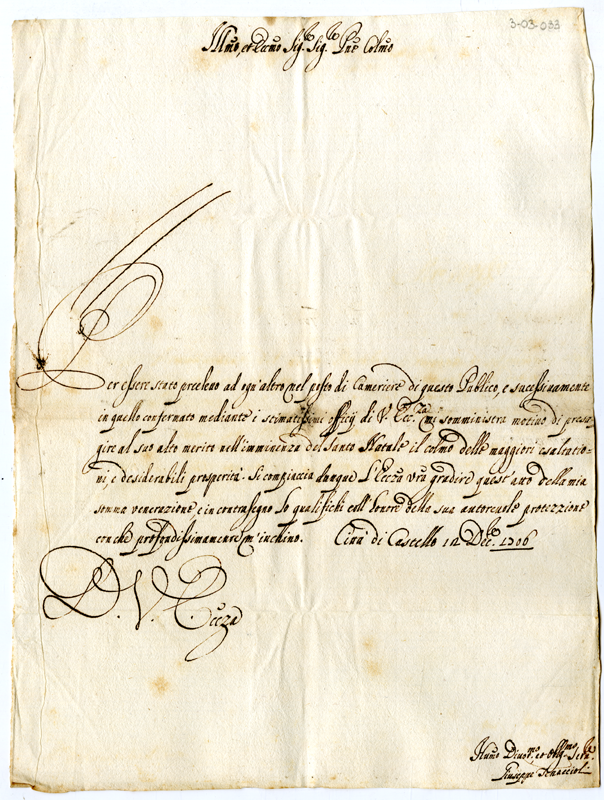 3-03-033
Illmo, et Eccmo Sig.re Sig.re Pne Colmo
Per essere stato preeletto ad ogn'altro nel posto di Cameriere di questo Publico, e sucessivamente
in quello confermato mediante i stimatissimi officij di V. Ecc.za mi somministra motivo di presa-
gire al suo alto merito nell'imminenza del Santo Natale il colmo delle maggiori esaltatio-
ni, e desiderabili prosperità. Si compiaccia dunque l'Eccza vra gradire quest'atto della mia
somma veneratione, e in contrasegno lo qualifichi coll'honore della sua autorevole protezzione
con che profondissimamente m'inchino. Città di Castello 12 Dec.e 1706
D. V. Eccza
Humo Divot.mo et Obligmo Ser.re
Giuseppe